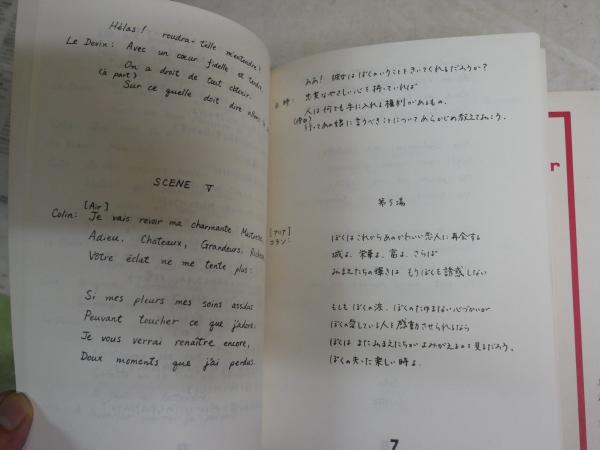 Hélas! voudra-telle m'entendre?
Le Devin: Avec un cœur fidelle et tendre,
On a droit de tout obtenir.
(à part)
Sur ce quelle doit dire allons la
SCENE V
[Air]
Colin: Je vais revoir ma charmante Maitresse,
Adieu, Chateaux, Grandeurs, Richesse
Vôtre éclat ne me tente plus:
Si mes pleurs mes soins assidus
Peuvent toucher ce que j'adore,
Je vous verrai renaître encore,
Doux moments que j'ai perdus.
ああ! 彼女はぼくのいうことをきいてくれるだろうか?
忠実なやさしい心を持っていれば
人は何でも手に入れる権利があるもの。
(傍白)
行ってあの娘に言うべきことについてあらかじめ教えておこう。
第5場
[アリア]
コラン:
ぼくはこれからあのかわいい恋人に再会する
城よ、栄華よ、富よ、さらば
おまえたちの輝きは もうぼくを誘惑しない
もしもぼくの涙、ぼくのたゆまない心づかいが
ぼくの愛している人を感動させられるなら
ぼくは またおまえたちがよみがえるのを見るだろう。
ぼくの失った楽しい時よ。
7
r